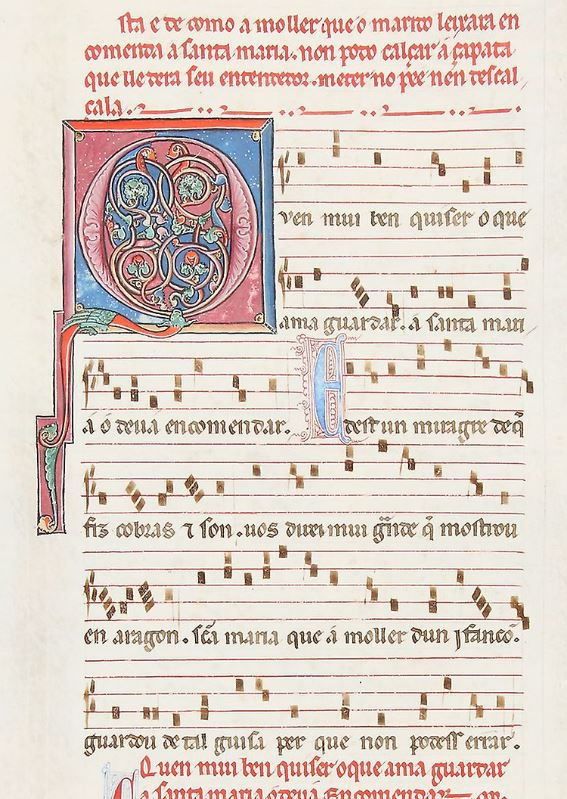 Esta e de como a moller que o marito leixara en
comenda a santa maria. non podo calçar a çapata
que lle dera seu entendedor. meter no pee nen descal
çala.
Quen mui ben quiser o que
ama guardar. a santa mari
a o deua encomendar. E dest un miragre de q̄
fiz cobras ⁊ son. uos direi mui g̃nde q̄ mostrou
en aragon. sc̃a maria que a moller dun Ifançõ.
guardou de tal guisa per que non podess errar.
Quen mui ben quiser o que ama guardar
a santa maria o deua Encomendar